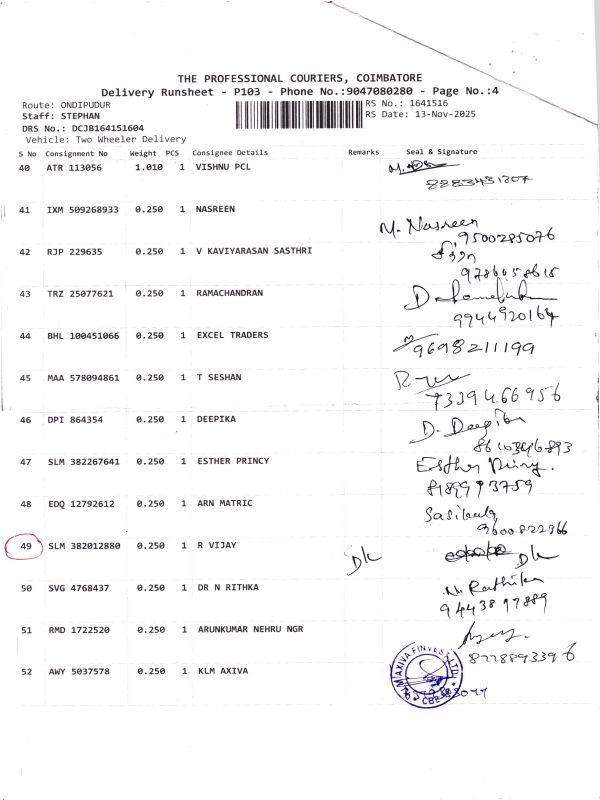 THE PROFESSIONAL COURIERS, COIMBATORE
Delivery Runsheet - P103 - Phone No.:9047080280 - Page No.:4
Route: ONDIPUDUR
RS No.: 1641516
Staff: STEPHAN
RS Date: 13-Nov-2025
DRS No.: DCJB164151604
Vehicle: Two Wheeler Delivery
S No Consignment No Weight PCS Consignee Details Remarks Seal & Signature
40 ATR 113056 1.010 1 VISHNU PCL
8883431207
41 IXM 509268933 0.250 1 NASREEN
M. Nasreen
9500285076
42 RJP 229635 0.250 1 V KAVIYARASAN SASTHRI
43 TRZ 25077621 0.250 1 RAMACHANDRAN
9944920164
44 BHL 100451066 0.250 1 EXCEL TRADERS
9698211199
45 MAA 578094861 0.250 1 T SESHAN
7339466956
46 DPI 864354 0.250 1 DEEPIKA
D. Deepika
47 SLM 382267641 0.250 1 ESTHER PRINCY
Esther Princy.
8189993759
48 EDQ 12792612 0.250 1 ARN MATRIC
Sasikala
9600822366
49 SLM 382012880 0.250 1 R VIJAY
DK DK
50 SVG 4768437 0.250 1 DR N RITHKA
N. Rathika
9443897889
51 RMD 1722520 0.250 1 ARUNKUMAR NEHRU NGR
8778893396
52 AWY 5037578 0.250 1 KLM AXIVA
KLM AXIVA FINVEST LTD
CBE